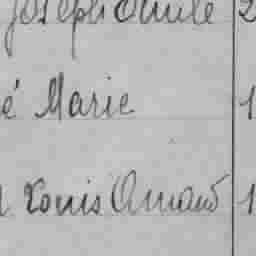 Joseph Emile 2
é Marie 1
Louis Amand 1